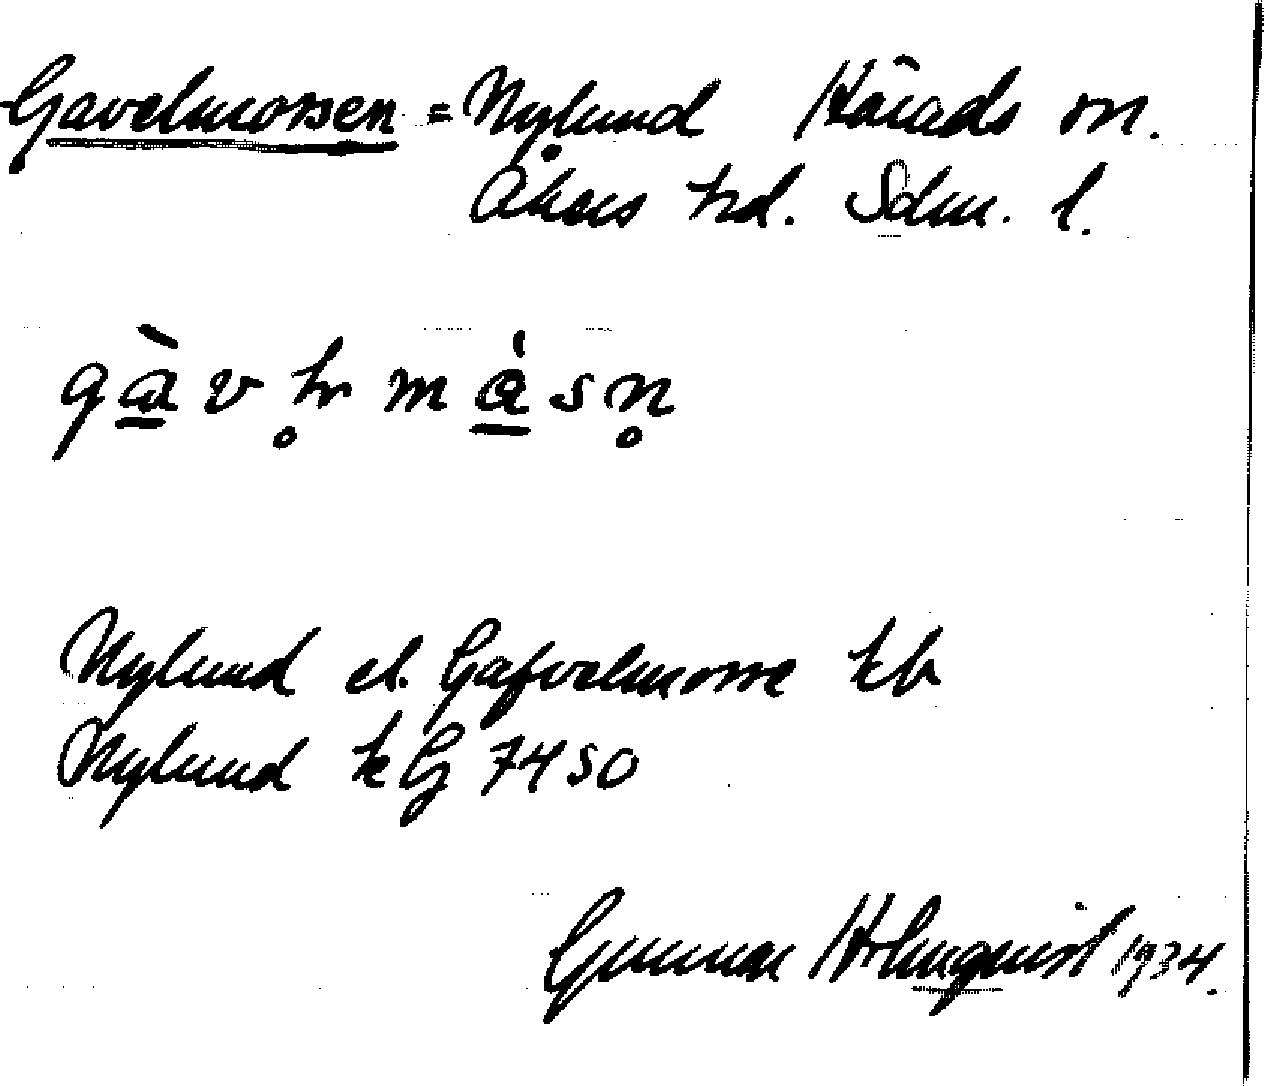 Gavelmossen = Nylund Härads sn.
Åkers hd. Sdm. l.
Nylund el. Gafvelmosse kb
Nylund kG 7450
Gunnar Holmquist 1934.